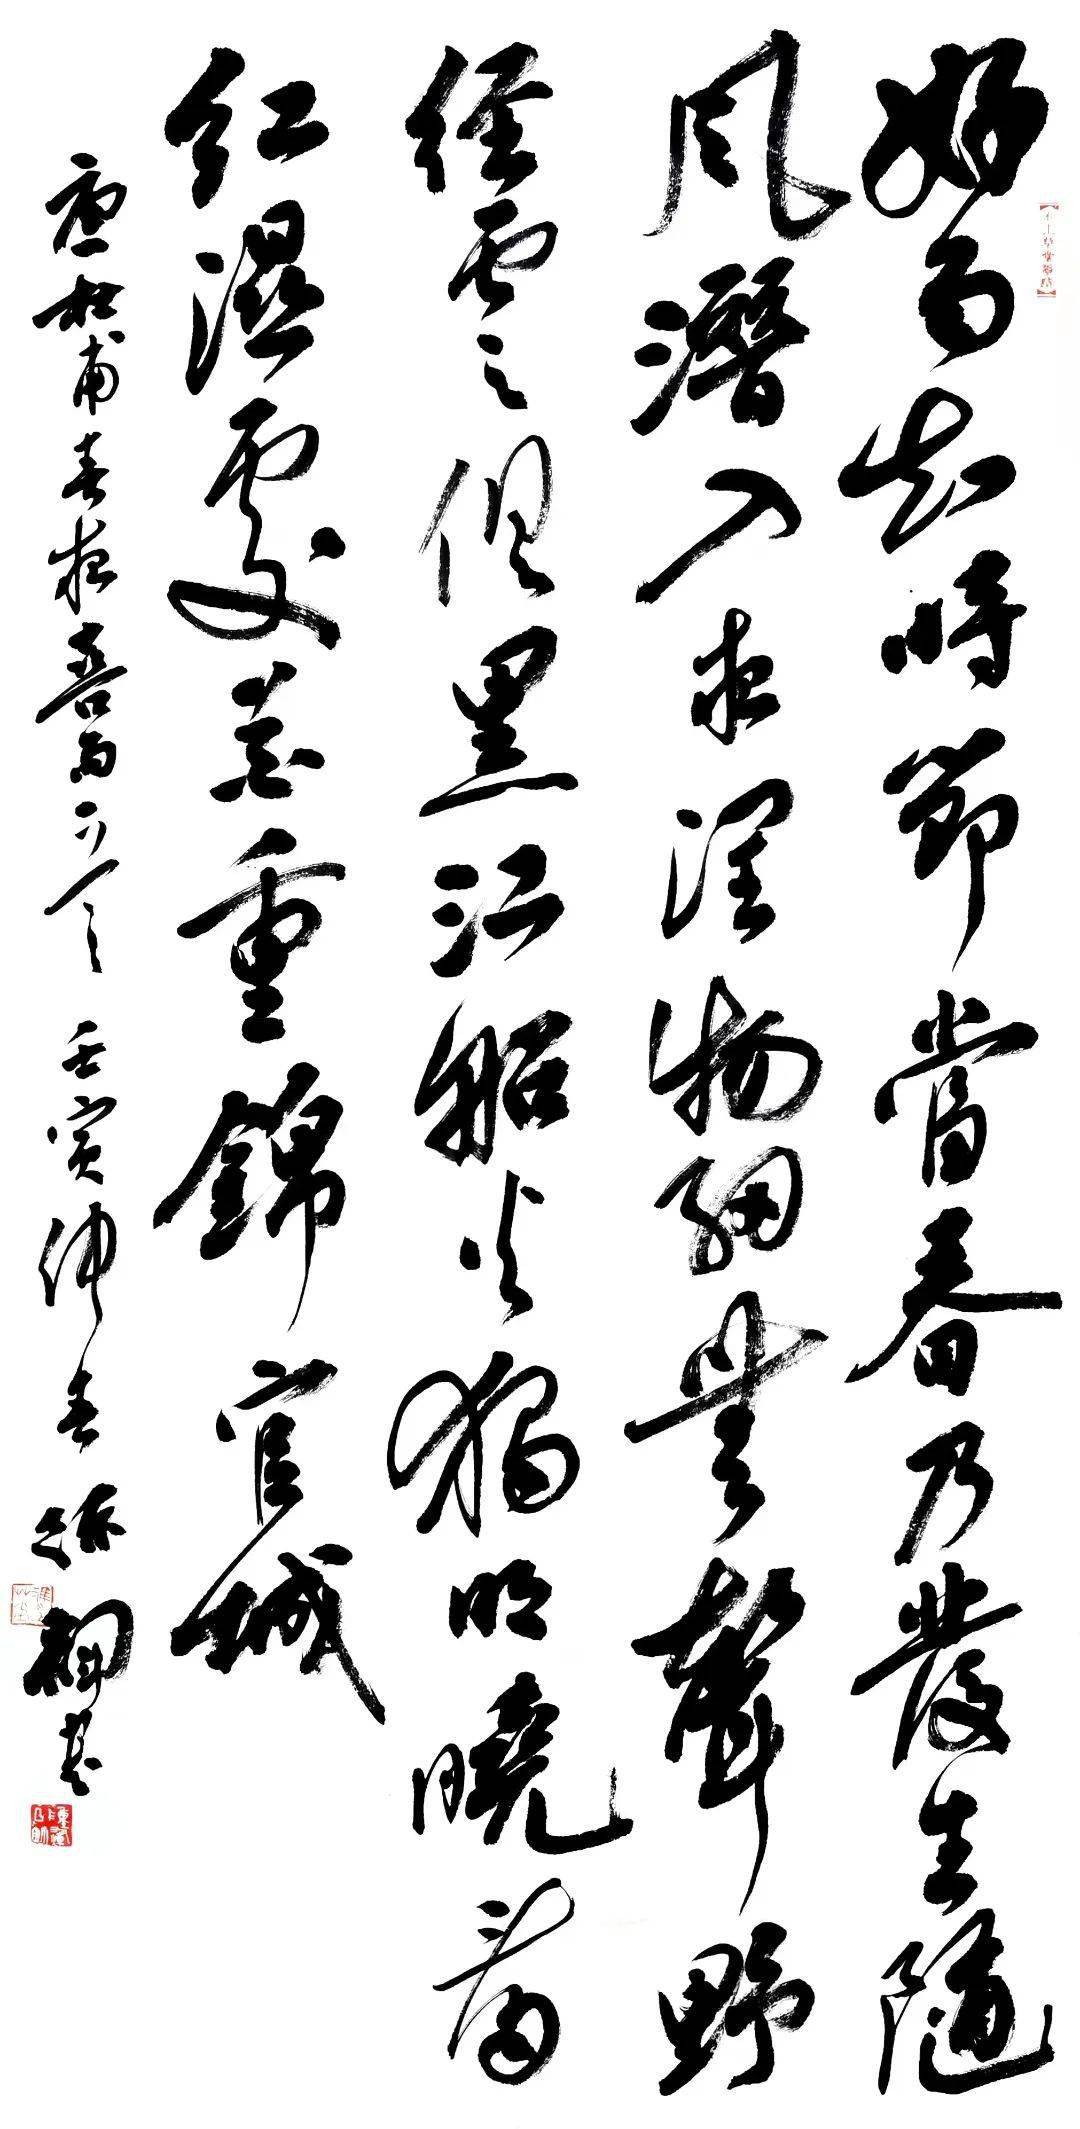 好雨知時節當春乃發生隨
風潛入夜潤物細無聲野
徑雲之俱黑江船火獨明曉看
紅濕處花重錦官城
唐杜甫春夜喜雨 壬寅仲春